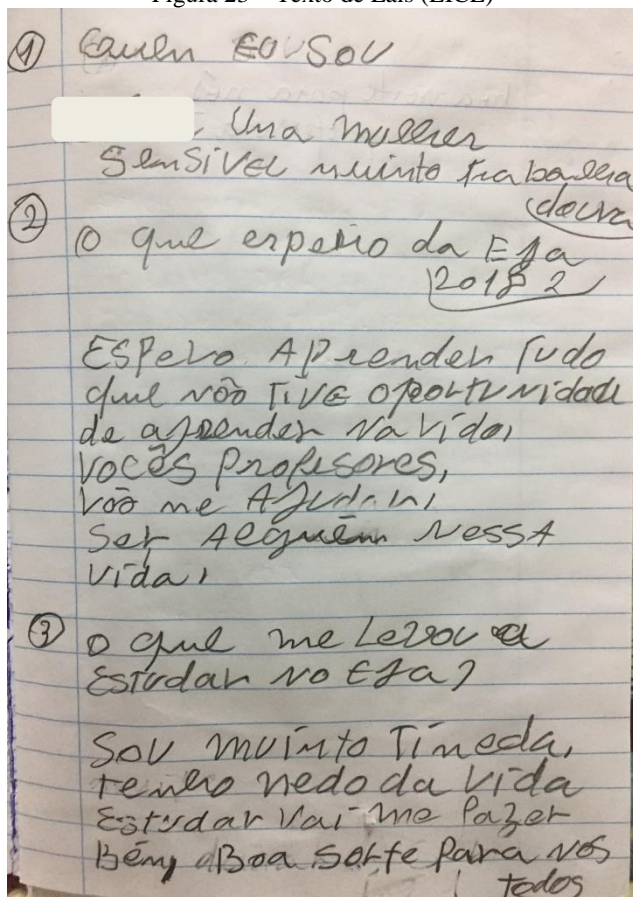 Figura 23 – Texto de Laís (LICE)
1 Quem EU SOU
Una mulher
SenSível muinto trabalha
deura
2 O que espero da Eja
2018 2
ESPero APrender Tudo
que não TIVE OPORTUNidade
de aprender Na Vida,
Vocês Profesores,
Vão me AJudar,
Ser Alguém NessA
Vida,
3 O que me Levou a
Estudar NO EJa?
Sou muinto Timeda,
tenho medo da Vida
Estudar Vai me Fazer
Bém, Boa Sorte Para NOS
todos